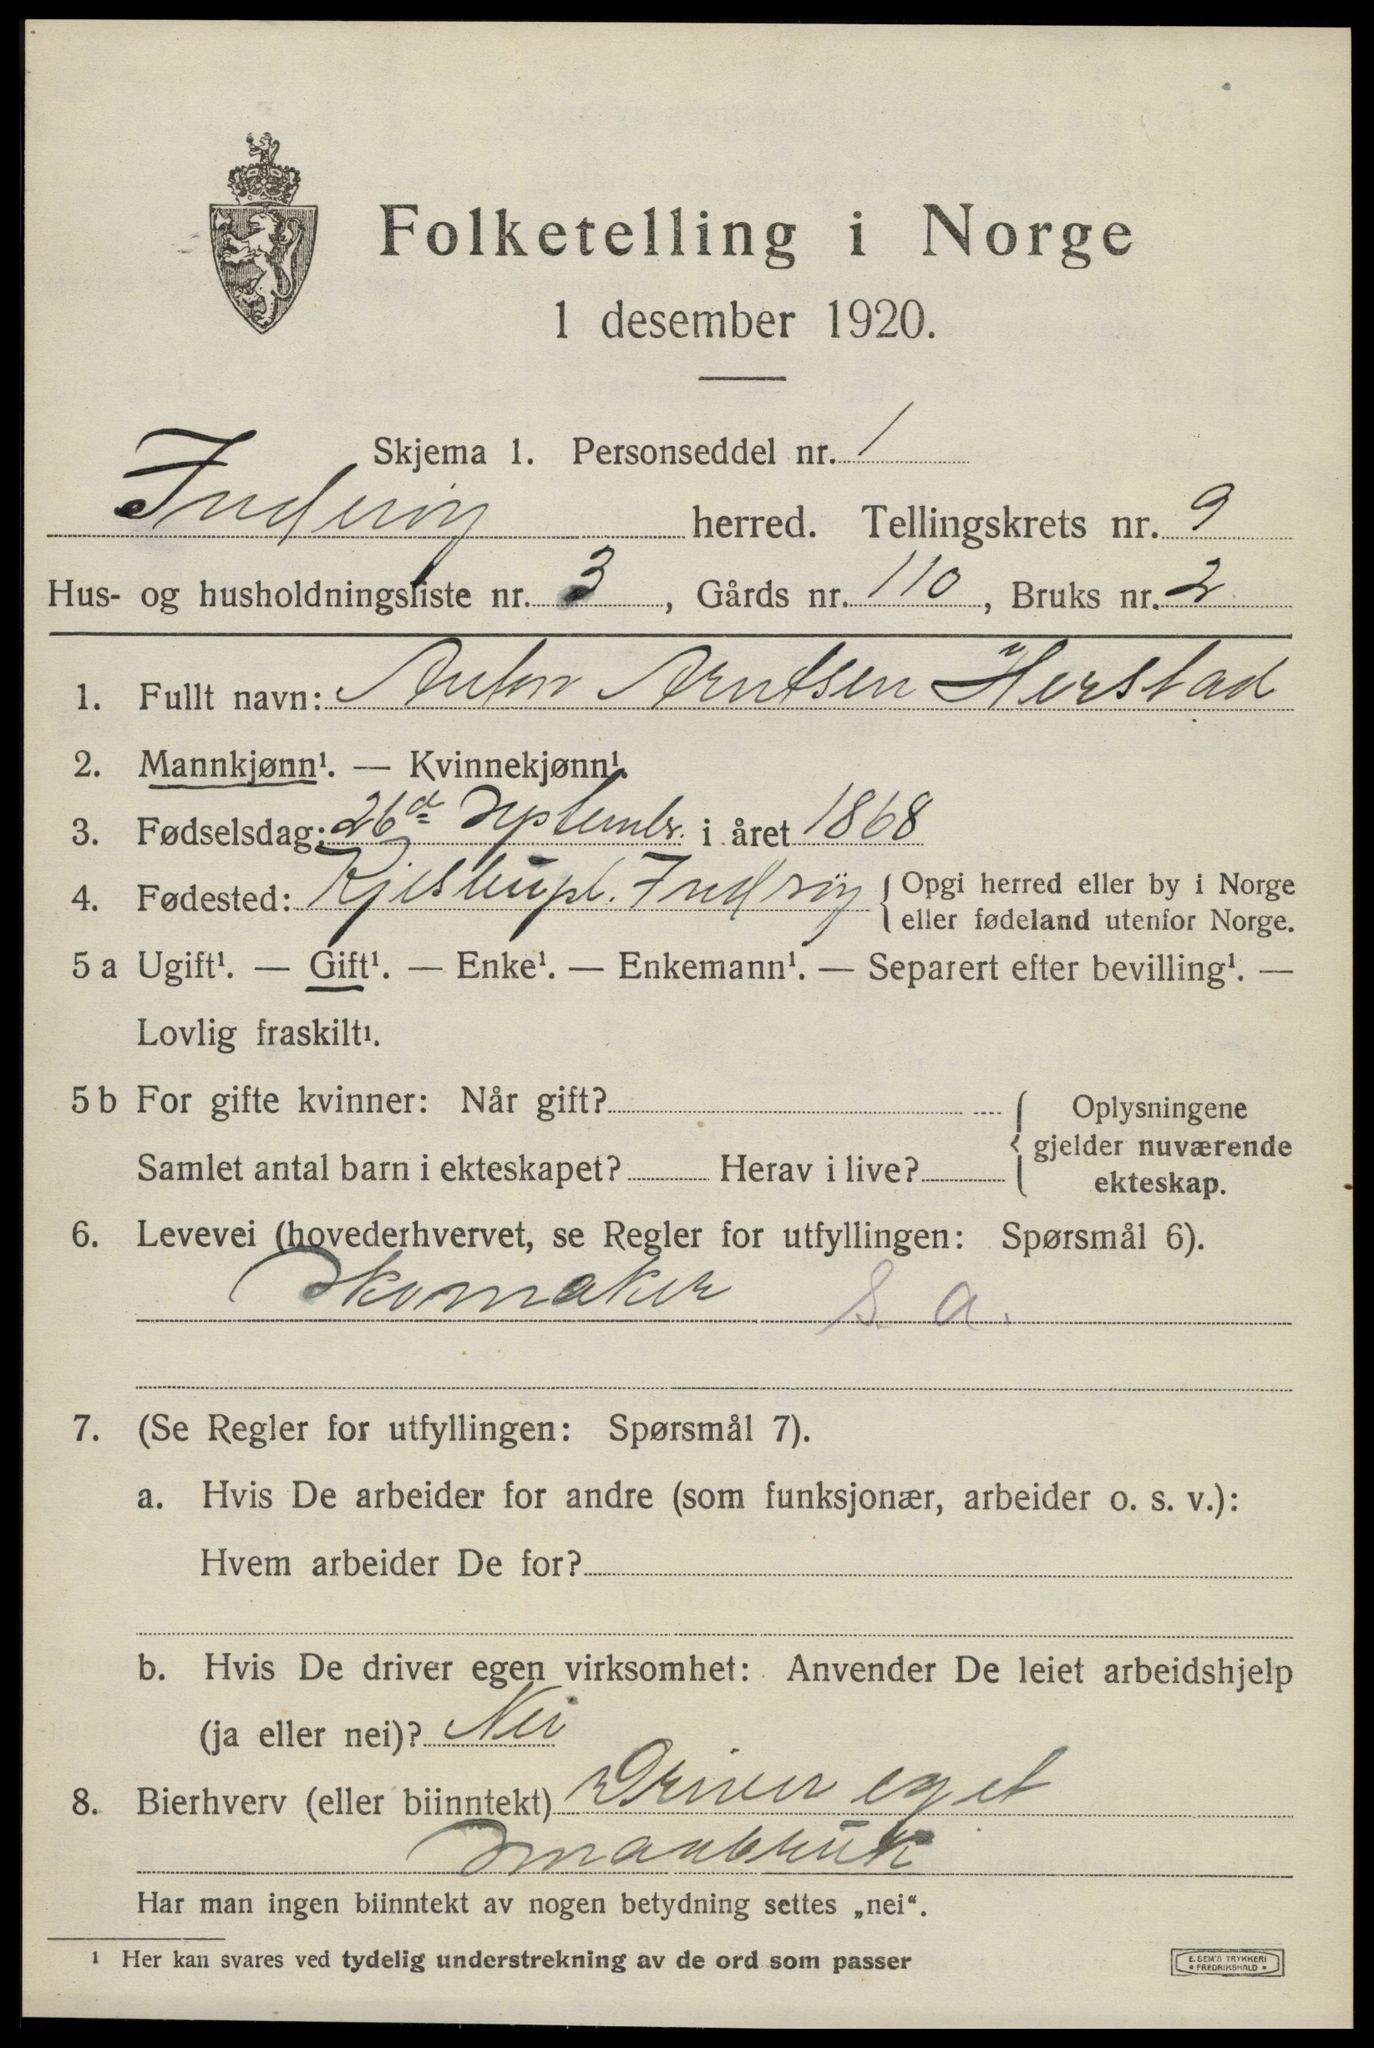 Folketelling i Norge
1 desember 1920.
Skjema 1. Personseddel nr. 1
Inderøy herred. Tellingskrets nr. 9
Hus- og husholdningsliste nr. 3, Gårds nr. 110, Bruks nr. 2
1. Fullt navn: Anton Arntsen Herstad
2. Mannkjønn¹. — Kvinnekjønn¹.
3. Fødselsdag: 26de September i året 1868
4. Fødested: Inderøy { Opgi herred eller by i Norge
eller fødeland utenfor Norge.
5 a Ugift¹. — Gift¹. — Enke¹. — Enkemann¹. — Separert efter bevilling¹. —
Lovlig fraskilt¹.
5 b For gifte kvinner: Når gift? { Oplysningene
gjelder nuværende
Samlet antal barn i ekteskapet? Herav i live?
ekteskap.
6. Levevei (hovederhvervet, se Regler for utfyllingen: Spørsmål 6).
Skomaker S. a.
7. (Se Regler for utfyllingen: Spørsmål 7).
a. Hvis De arbeider for andre (som funksjonær, arbeider o. s. v.):
Hvem arbeider De for?
b. Hvis De driver egen virksomhet: Anvender De leiet arbeidshjelp
(ja eller nei)? Nei
8. Bierhverv (eller biinntekt) Driver eget
Smaabruk
Har man ingen biinntekt av nogen betydning settes „nei“.
¹ Her kan svares ved tydelig understrekning av de ord som passer
E. SEM'S TRYKKERI
FREDRIKSHALD